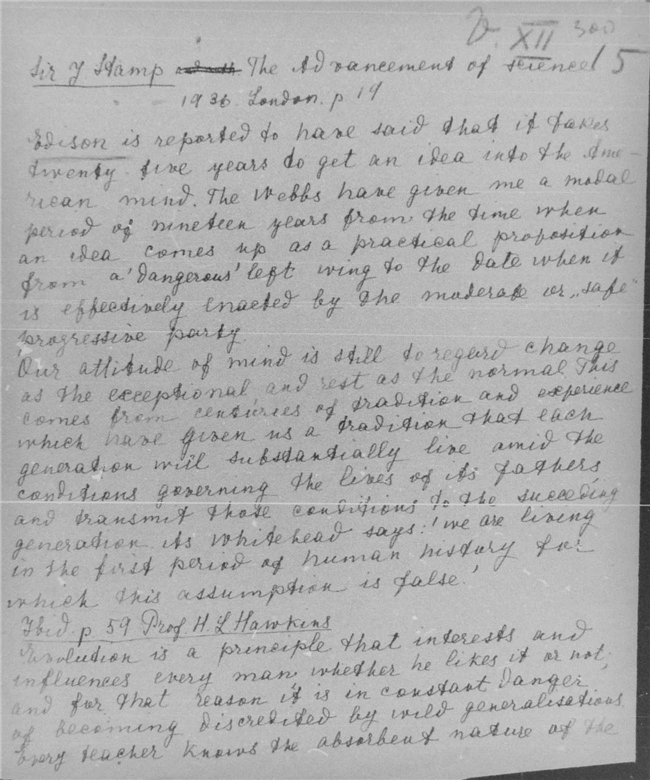 D. XII 300
Sir J Stamp and with The Advancement of science 15
1936. London. p 19
Edison is reported to have said that it takes
twenty five years to get an idea into the Ame-
rican mind. The Webbs have given me a modal
period of nineteen years from the time when
an idea comes up as a practical proposition
from a 'dangerous' left wing to the date when it
is effectively enacted by the moderate or „safe"
progressive party
Our attitude of mind is still to regard change
as the exceptional and rest as the normal This
comes from centuries of tradition and experience
which have given us a tradition that each
generation will substantially live amid the
conditions governing the lives of its fathers,
and transmit those conditions to the succeeding
generation. As Whitehead says: 'we are living
in the first period of human history for
which this assumption is false.'
Ibid. p. 59 Prof H. L Hawkins
Evolution is a principle that interests and
influences every man whether he likes it or not;
and for that reason it is in constant danger
of becoming discredited by wild generalisations
Every teacher knows the absorbent nature of the